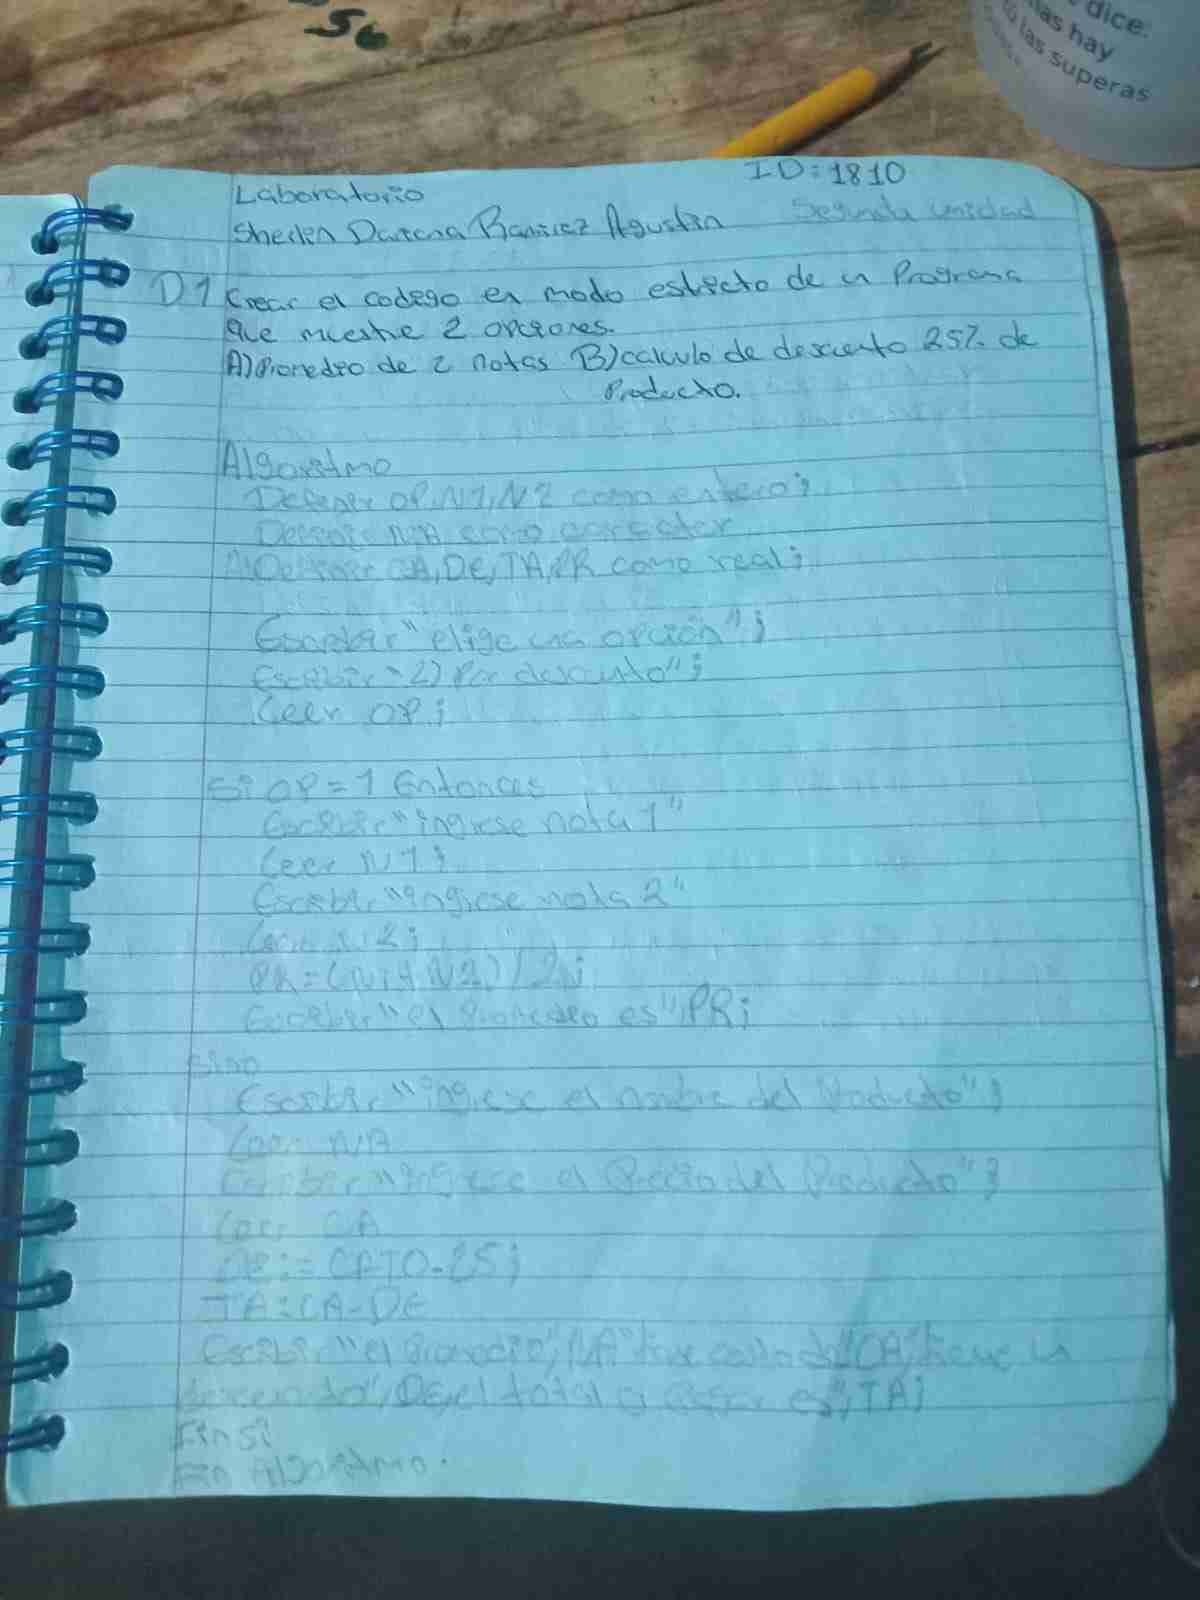 56
dice:
las hay
tú las superas
ID:1810
Laboratorio
Segunda unidad
Sherlen Darena Ramirez Agustin
D1 Crear el codigo en modo estricto de un Programa
que muestre 2 opciones.
A)Promedio de 2 notas B)calculo de descuento 25% de
Producto.
Algoritmo
Definir OP,N1,N2 como entero;
Definir NA como caracter
Definir CA,DE,TA,PR como real;
Escribir "elige una opción";
Escribir "2) Por descuento";
Leer OP;
Si OP=1 Entonces
Escribir "ingrese nota 1"
Leer N1;
Escribir "ingrese nota 2"
Leer N2;
PR=(N1+N2)/2;
Escribir "el Promedio es",PR;
sino
Escribir "ingrese el nombre del Producto";
Leer NA
Escribir "ingrese el Precio del Producto";
Leer CA
TA=CA-DE
Escribir "el Promedio", NA "tiene
descuento", DE, el total a es", TA;
Fin si
Fin Algoritmo.